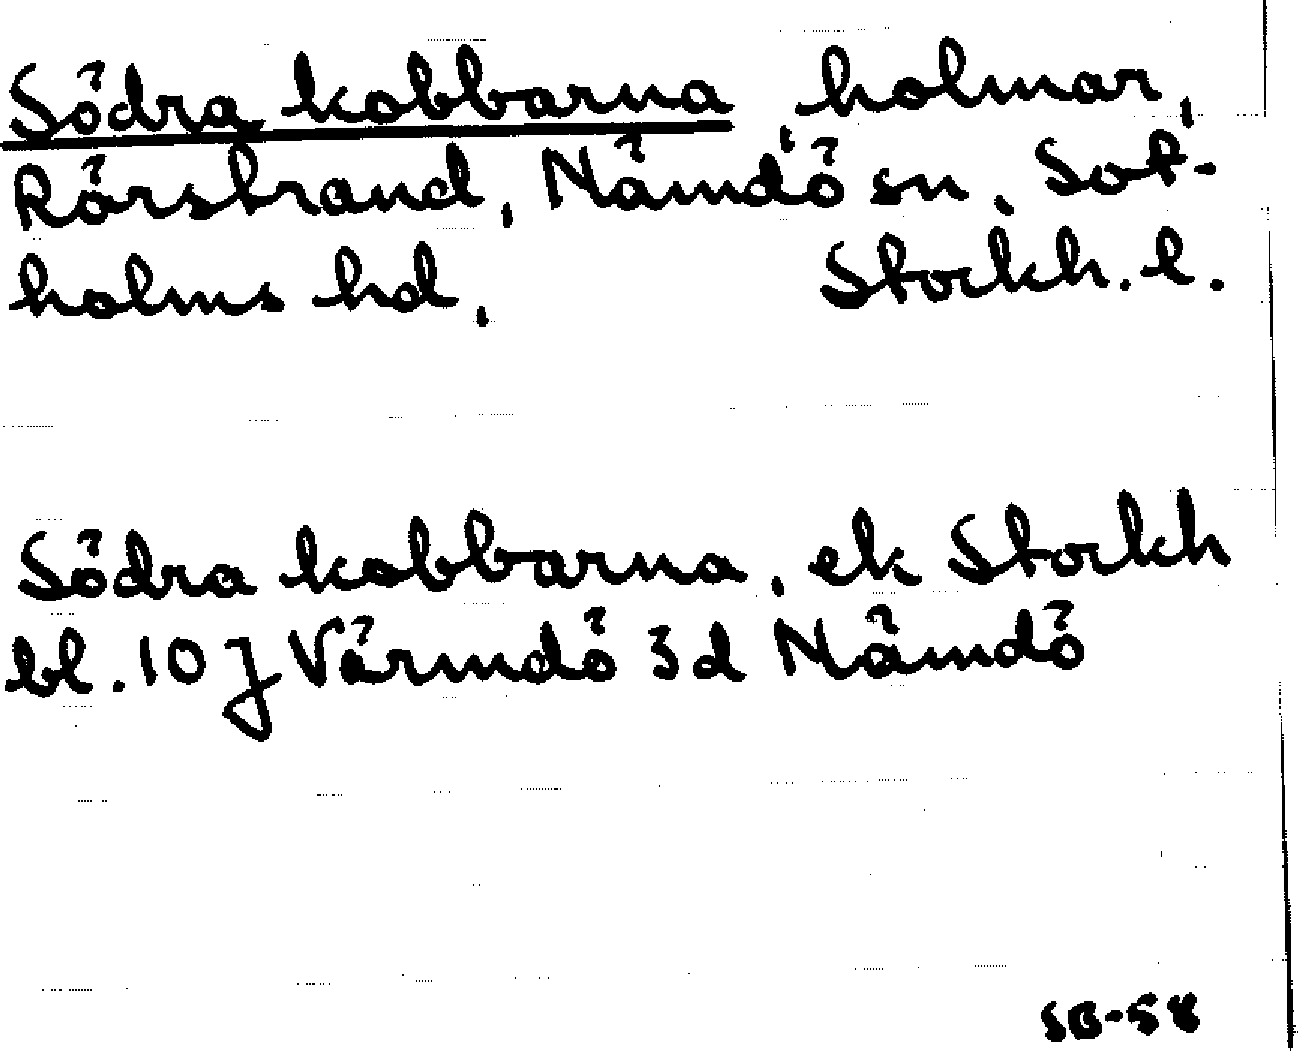 Södra kobbarna, holmar,
Rörstrand, Nämdö sn, Sot-
holms hd, Stockh. l.
Södra kobbarna, ek Stockh
bl. 10 J Värmdö 3d Nämdö
SB-58